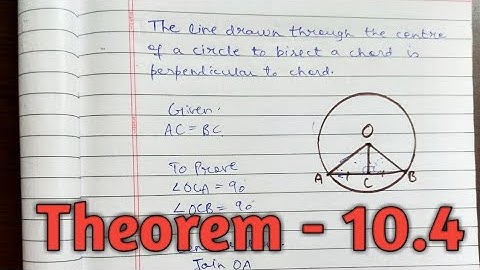 The line drawn through the centre
of a circle to bisect a chord is
perpendicular to chord.
Given:
AC = BC
O
A
C
B
To Prove
∠OCA = 90
∠OCB = 90
Theorem - 10.4
Join OA